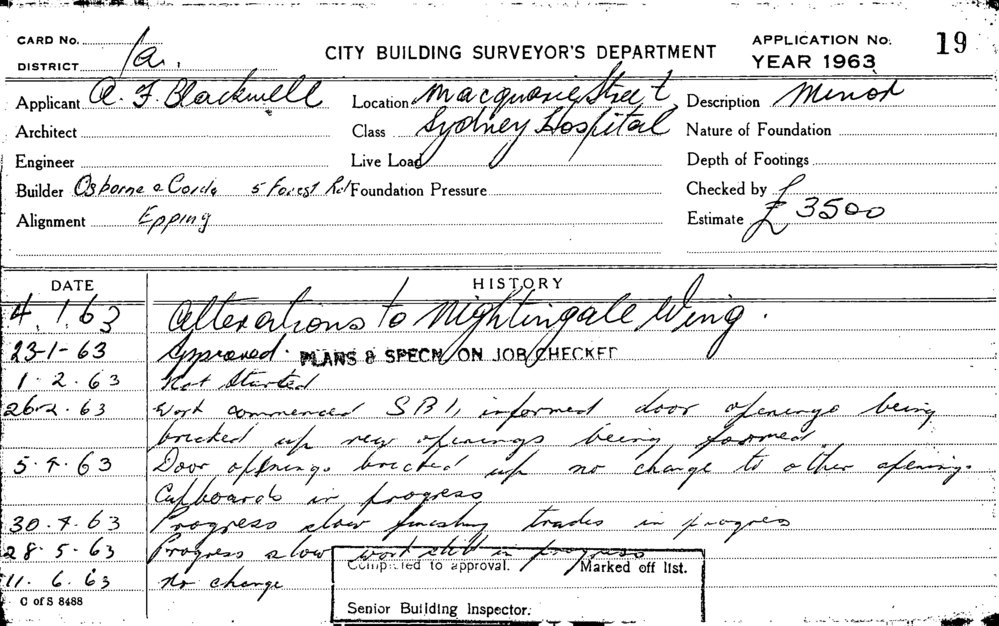 CARD No. 1a.
DISTRICT
CITY BUILDING SURVEYOR'S DEPARTMENT
APPLICATION No. 19
YEAR 1963
Applicant A. F. Blackwell
Location Macquarie Street,
Description Minor
Architect
Class Sydney Hospital
Nature of Foundation
Engineer
Live Load
Depth of Footings
Builder Osborne & 5 Forest Rd
Foundation Pressure
Checked by
Alignment Epping
Estimate £3500
DATE HISTORY
4.1.63 Alterations to Nightingale Wing.
23-1-63 Approved. PLANS & SPECN ON JOB CHECKED
1.2.63 Not Started
26.2.63 Work commenced informed door openings being
bricked up new openings being formed.
5.4.63 Door openings bricked up no change to other openings
Cupboards in progress
30.4.63 Progress slow finishing trades in progress
28.5.63 Progress slow work still in progress
Completed to approval. Marked off list.
11.6.63 No change
C of S 8488
Senior Building Inspector.